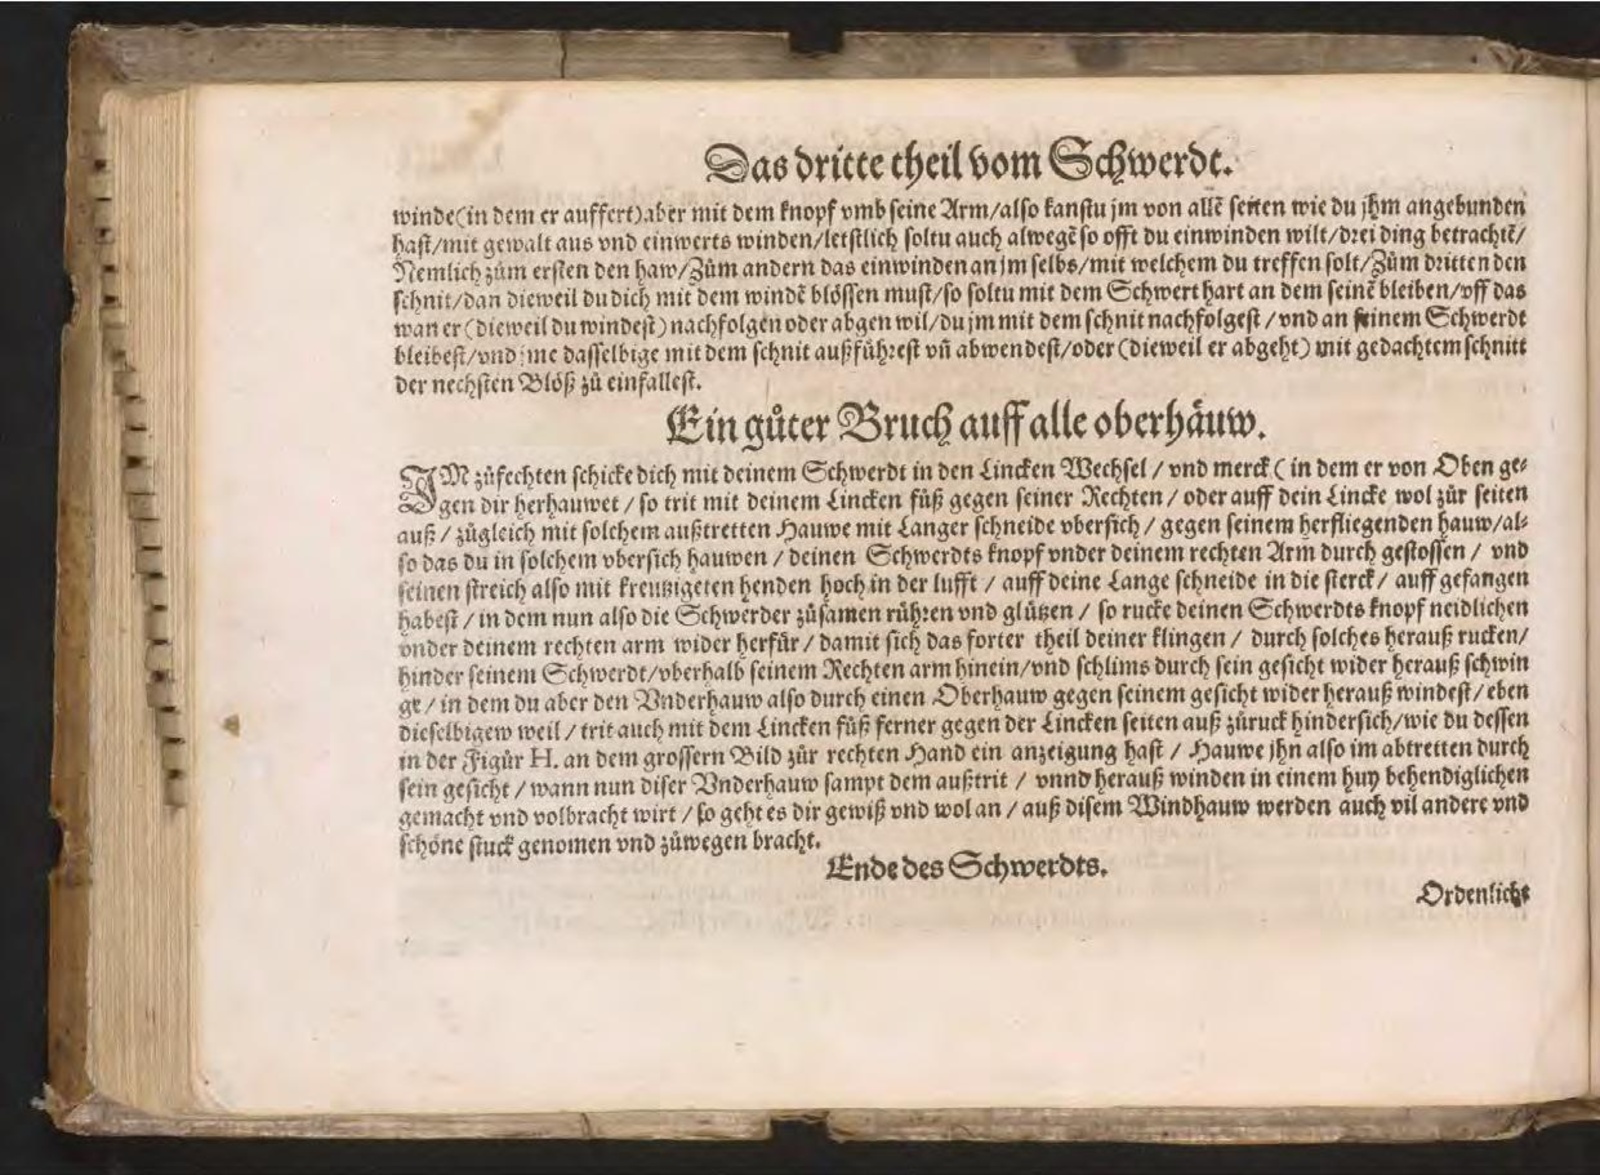 Das dritte theil vom Schwerdt.
winde(in dem er auffert)aber mit dem knopf vmb seine Arm/also kanstu jm von allē seiten wie du jhm angebunden
hast/mit gewalt aus vnd einwerts winden/letstlich soltu auch alwegē so offt du einwinden wilt/drei ding betrachtē/
Nemlich zům ersten den haw/Zům andern das einwinden an jm selbs/mit welchem du treffen solt/Zům dritten den
schnit/dan dieweil du dich mit dem windē blössen must/so soltu mit dem Schwert hart an dem seinē bleiben/vff das
wan er (dieweil du windest) nachfolgen oder abgen wil/du jm mit dem schnit nachfolgest / vnd an seinem Schwerdt
bleibest/vnd jme dasselbige mit dem schnit außführest vñ abwendest/oder (dieweil er abgeht) mit gedachtem schnitt
der nechsten Blöß zů einfallest.
Ein gůter Bruch auff alle oberhäuw.
IM zůfechten schicke dich mit deinem Schwerdt in den Lincken Wechsel / vnd merck ( in dem er von Oben ge⸗
gen dir herhauwet / so trit mit deinem Lincken fůß gegen seiner Rechten / oder auff dein Lincke wol zůr seiten
auß / zůgleich mit solchem außtretten Hauwe mit Langer schneide vbersich / gegen seinem herfliegenden hauw/al⸗
so das du in solchem vbersich hauwen / deinen Schwerdts knopf vnder deinem rechten Arm durch gestossen / vnd
seinen streich also mit kreutzigeten henden hoch in der lufft / auff deine Lange schneide in die sterck / auff gefangen
habest / in dem nun also die Schwerder zůsamen rühren vnd glützen / so rucke deinen Schwerdts knopf neidlichen
vnder deinem rechten arm wider herfür / damit sich das forter theil deiner klingen / durch solches herauß rucken/
hinder seinem Schwerdt/vberhalb seinem Rechten arm hinein/vnd schlims durch sein gesicht wider herauß schwin
ge / in dem du aber den Vnderhauw also durch einen Oberhauw gegen seinem gesicht wider herauß windest / eben
dieselbigew weil / trit auch mit dem Lincken fůß ferner gegen der Lincken seiten auß zůruck hindersich/wie du dessen
in der Figůr H. an dem grossern Bild zůr rechten Hand ein anzeigung hast / Hauwe jhn also im abtretten durch
sein gesicht / wann nun diser Vnderhauw sampt dem außtrit / vnnd herauß winden in einem huy behendiglichen
gemacht vnd volbracht wirt / so geht es dir gewiß vnd wol an / auß disem Windhauw werden auch vil andere vnd
schöne stuck genomen vnd zůwegen bracht.
Ende des Schwerdts.
Ordenliche